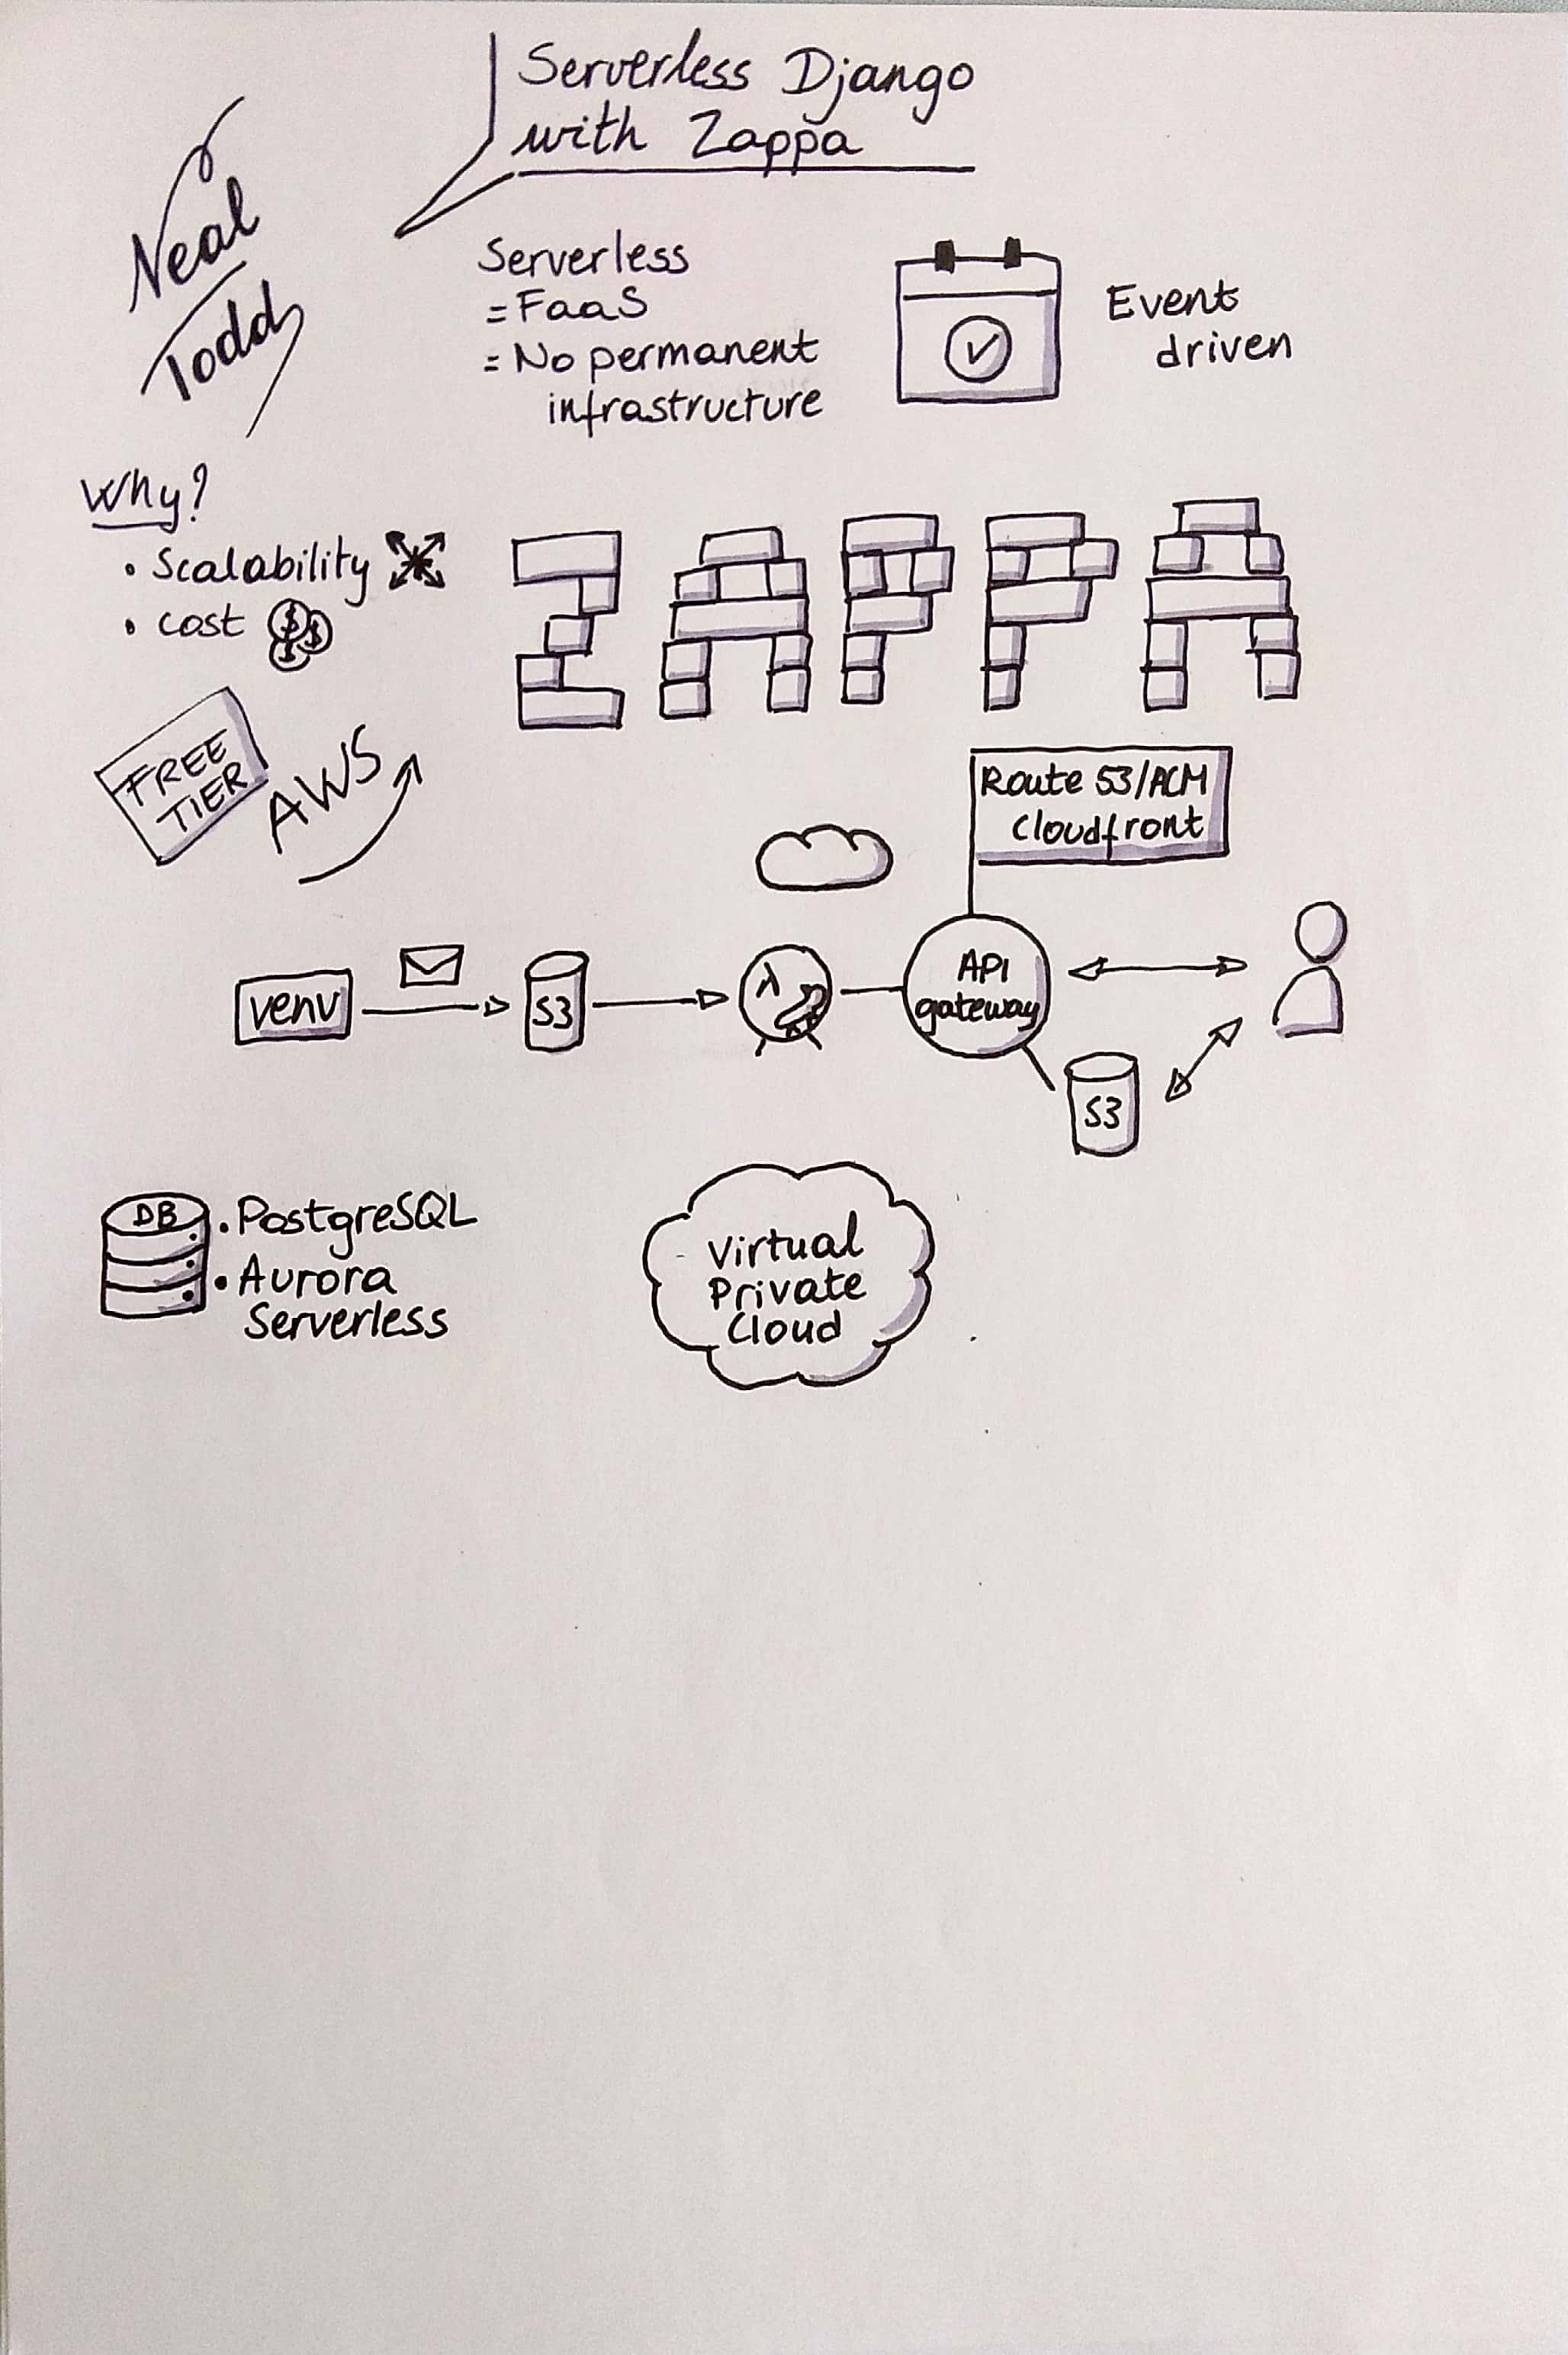 Serverless Django
with Zappa
Neal
Todd
Serverless
= FaaS
= No permanent
infrastructure
Event
driven
Why?
• Scalability
• cost
ZAPPA
FREE
TIER
AWS
Route 53/ACM
Cloudfront
venv
S3
λ
API
gateway
S3
DB
• PostgreSQL
• Aurora
Serverless
Virtual
Private
Cloud